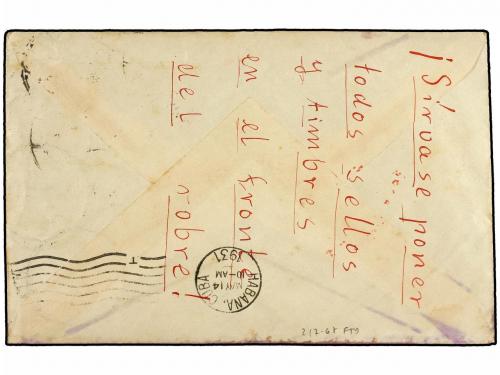 ¡Sírvase poner
todos sellos
y timbres
en el frente
del sobre!
HABANA, CUBA
MAY 14
10-AM
1931
T